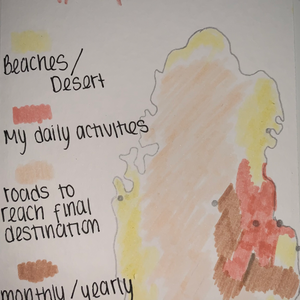 Beaches/
Desert
My daily activities
roads to
reach final
destination
monthly/yearly